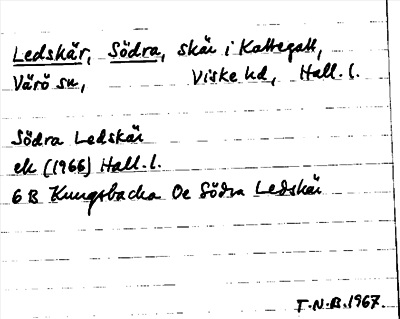 Ledskär, Södra, skär i Kattegatt,
Värö sn, Viske hd, Hall. l.
Södra Ledskär
ek (1966) Hall. l.
6 B Kungsbacka 0e Södra Ledskär
T.N.B. 1967.